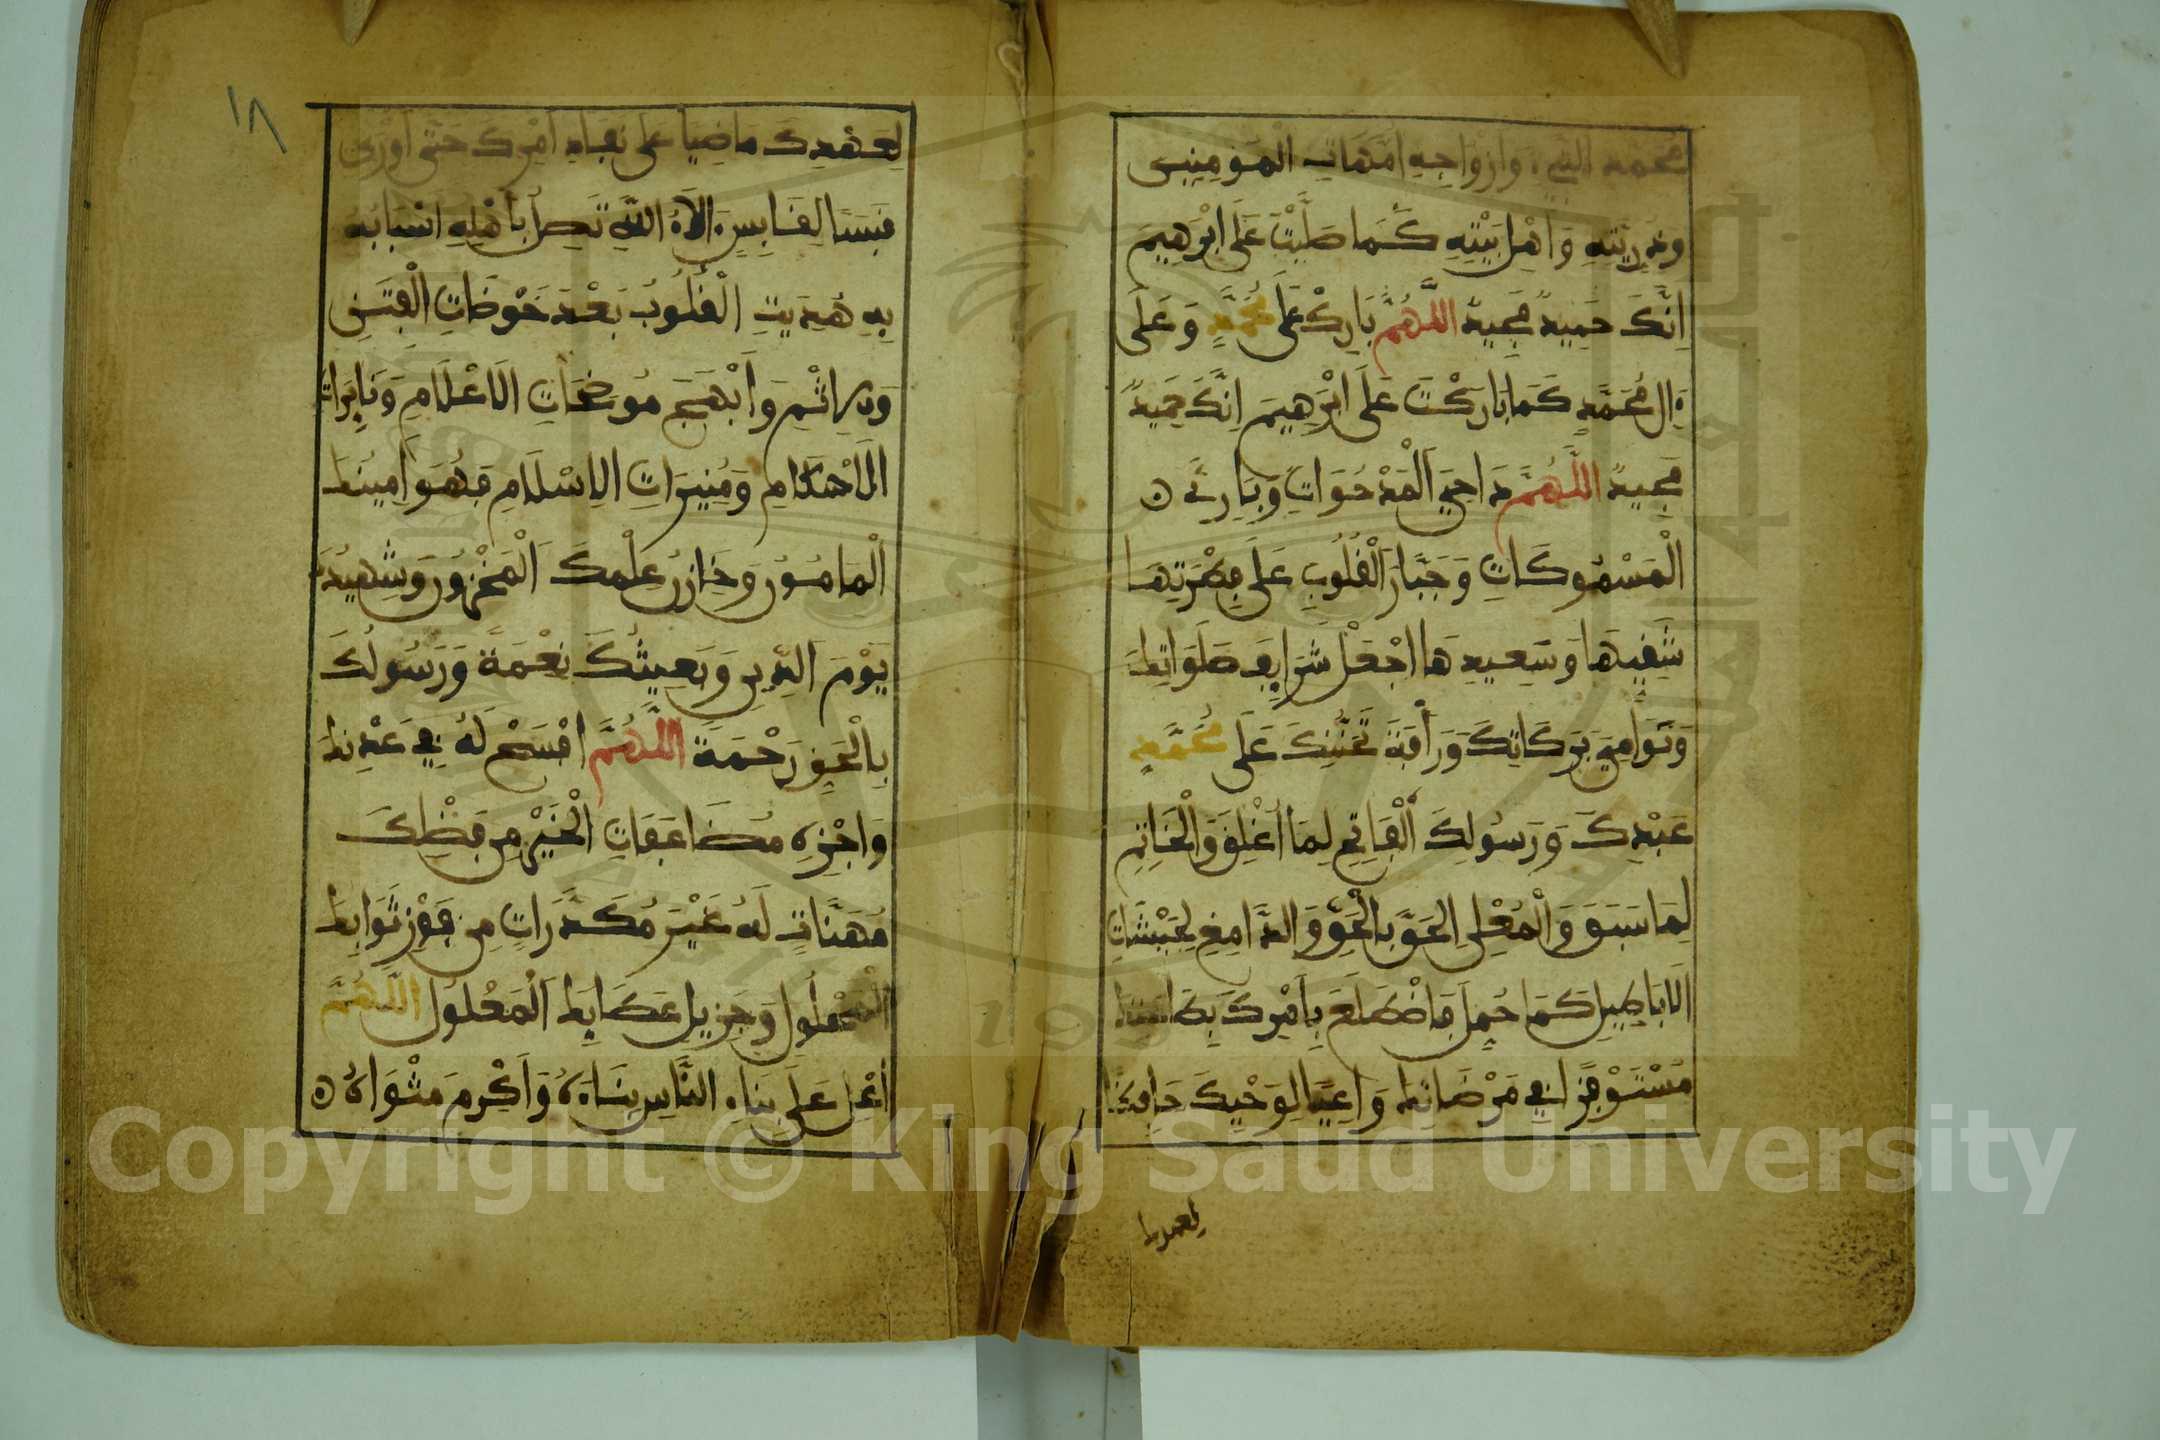 محمد النبي وازواجه امهات المومنين
وذريته واهل بيته كما صليت على ابرهيم
انك حميد مجيد اللهم بارك على محمد وعلى
ءال محمد كما باركت على ابرهيم انك حميد
مجيد اللهم داحي المدحوات وباري
المسموكات وجبار القلوب على فطرتها
شقيها وسعيدها اجعل شرايف صلواتك
ونوامي بركاتك ورافة تحننك على محمد
عبدك ورسولك الفاتح لما اغلق والخاتم
لما سبق والمعلن الحق بالحق والدامغ لجيشات
الاباطيل كما حمل فاضطلع بامرك بطاعتك
مستوفزا في مرضاتك واعيا لوحيك حافظا
لعهدك
١٨
لعهدك ماضيا على نفاذ امرك حتى اورى
قبسا لقابس الاء الله تصل باهله اسبابه
به هديت القلوب بعد خوضات الفتن
والاثم وابهج موضحات الاعلام ونايرات
الاحكام ومنيرات الاسلام فهو امينك
المامون وخازن علمك المخزون وشهيدك
يوم الدين وبعيثك نعمة ورسولك
بالحق رحمة اللهم افسح له في عدنك
واجزه مضاعفات الخير من فضلك
مهنات له غير مكدرات من فوز ثوابك
المحلول وجزيل عطايك المعلول اللهم
اعل على بناء الناس بناءه واكرم مثواه
Copyright © King Saud University